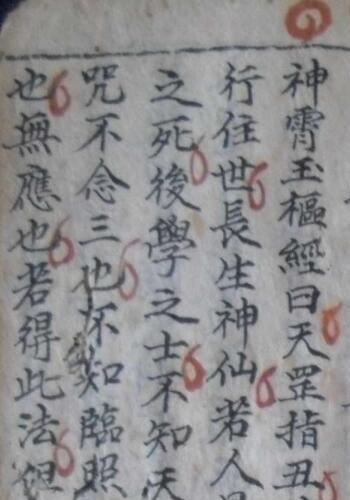 神霄玉樞經曰天罡指丑
行住世長生神仙若人
之死後學之士不知天
咒不念三也不知臨照
也無應也若得此法但